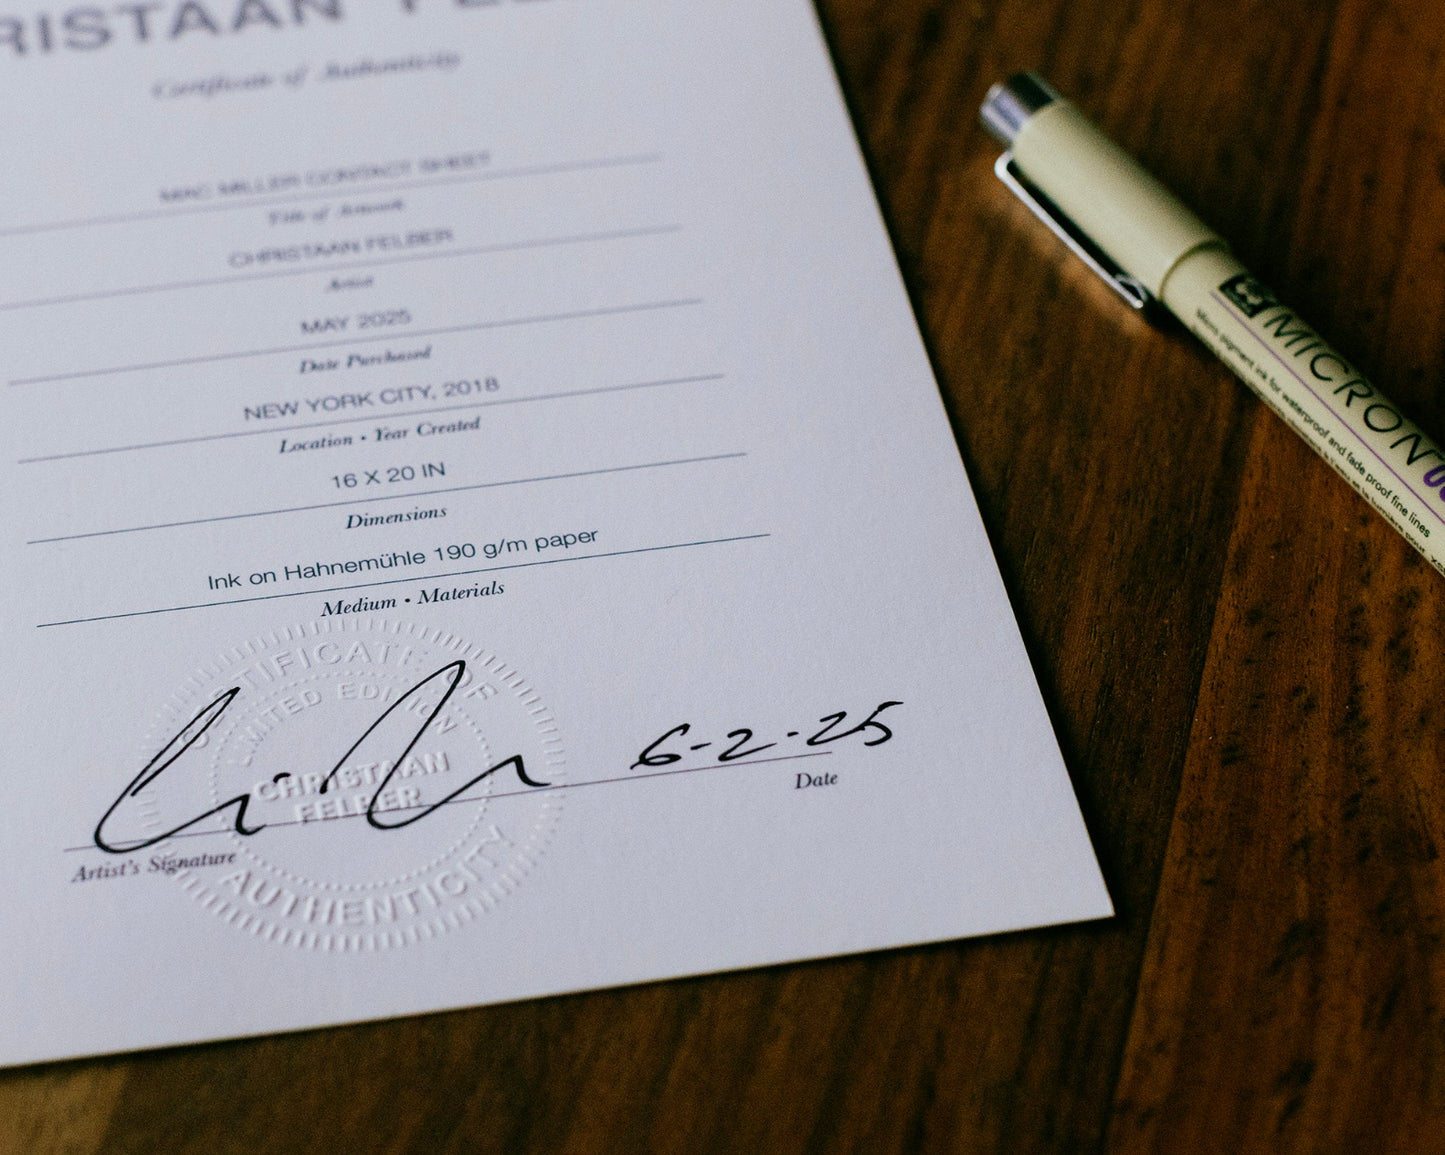 RISTAAN FEL
Certificate of Authenticity
MAC MILLER CONTACT SHEET
Title of Artwork
CHRISTAAN FELBER
Artist
MAY 2025
Date Purchased
NEW YORK CITY, 2018
Location • Year Created
16 X 20 IN
Dimensions
Ink on Hahnemühle 190 g/m paper
Medium • Materials
CERTIFICATE OF
LIMITED EDITION
CHRISTAAN
FELBER
AUTHENTICITY
6-2-25
Artist's Signature
Date
MICRON
Micro pigment ink for waterproof and fade proof fine lines